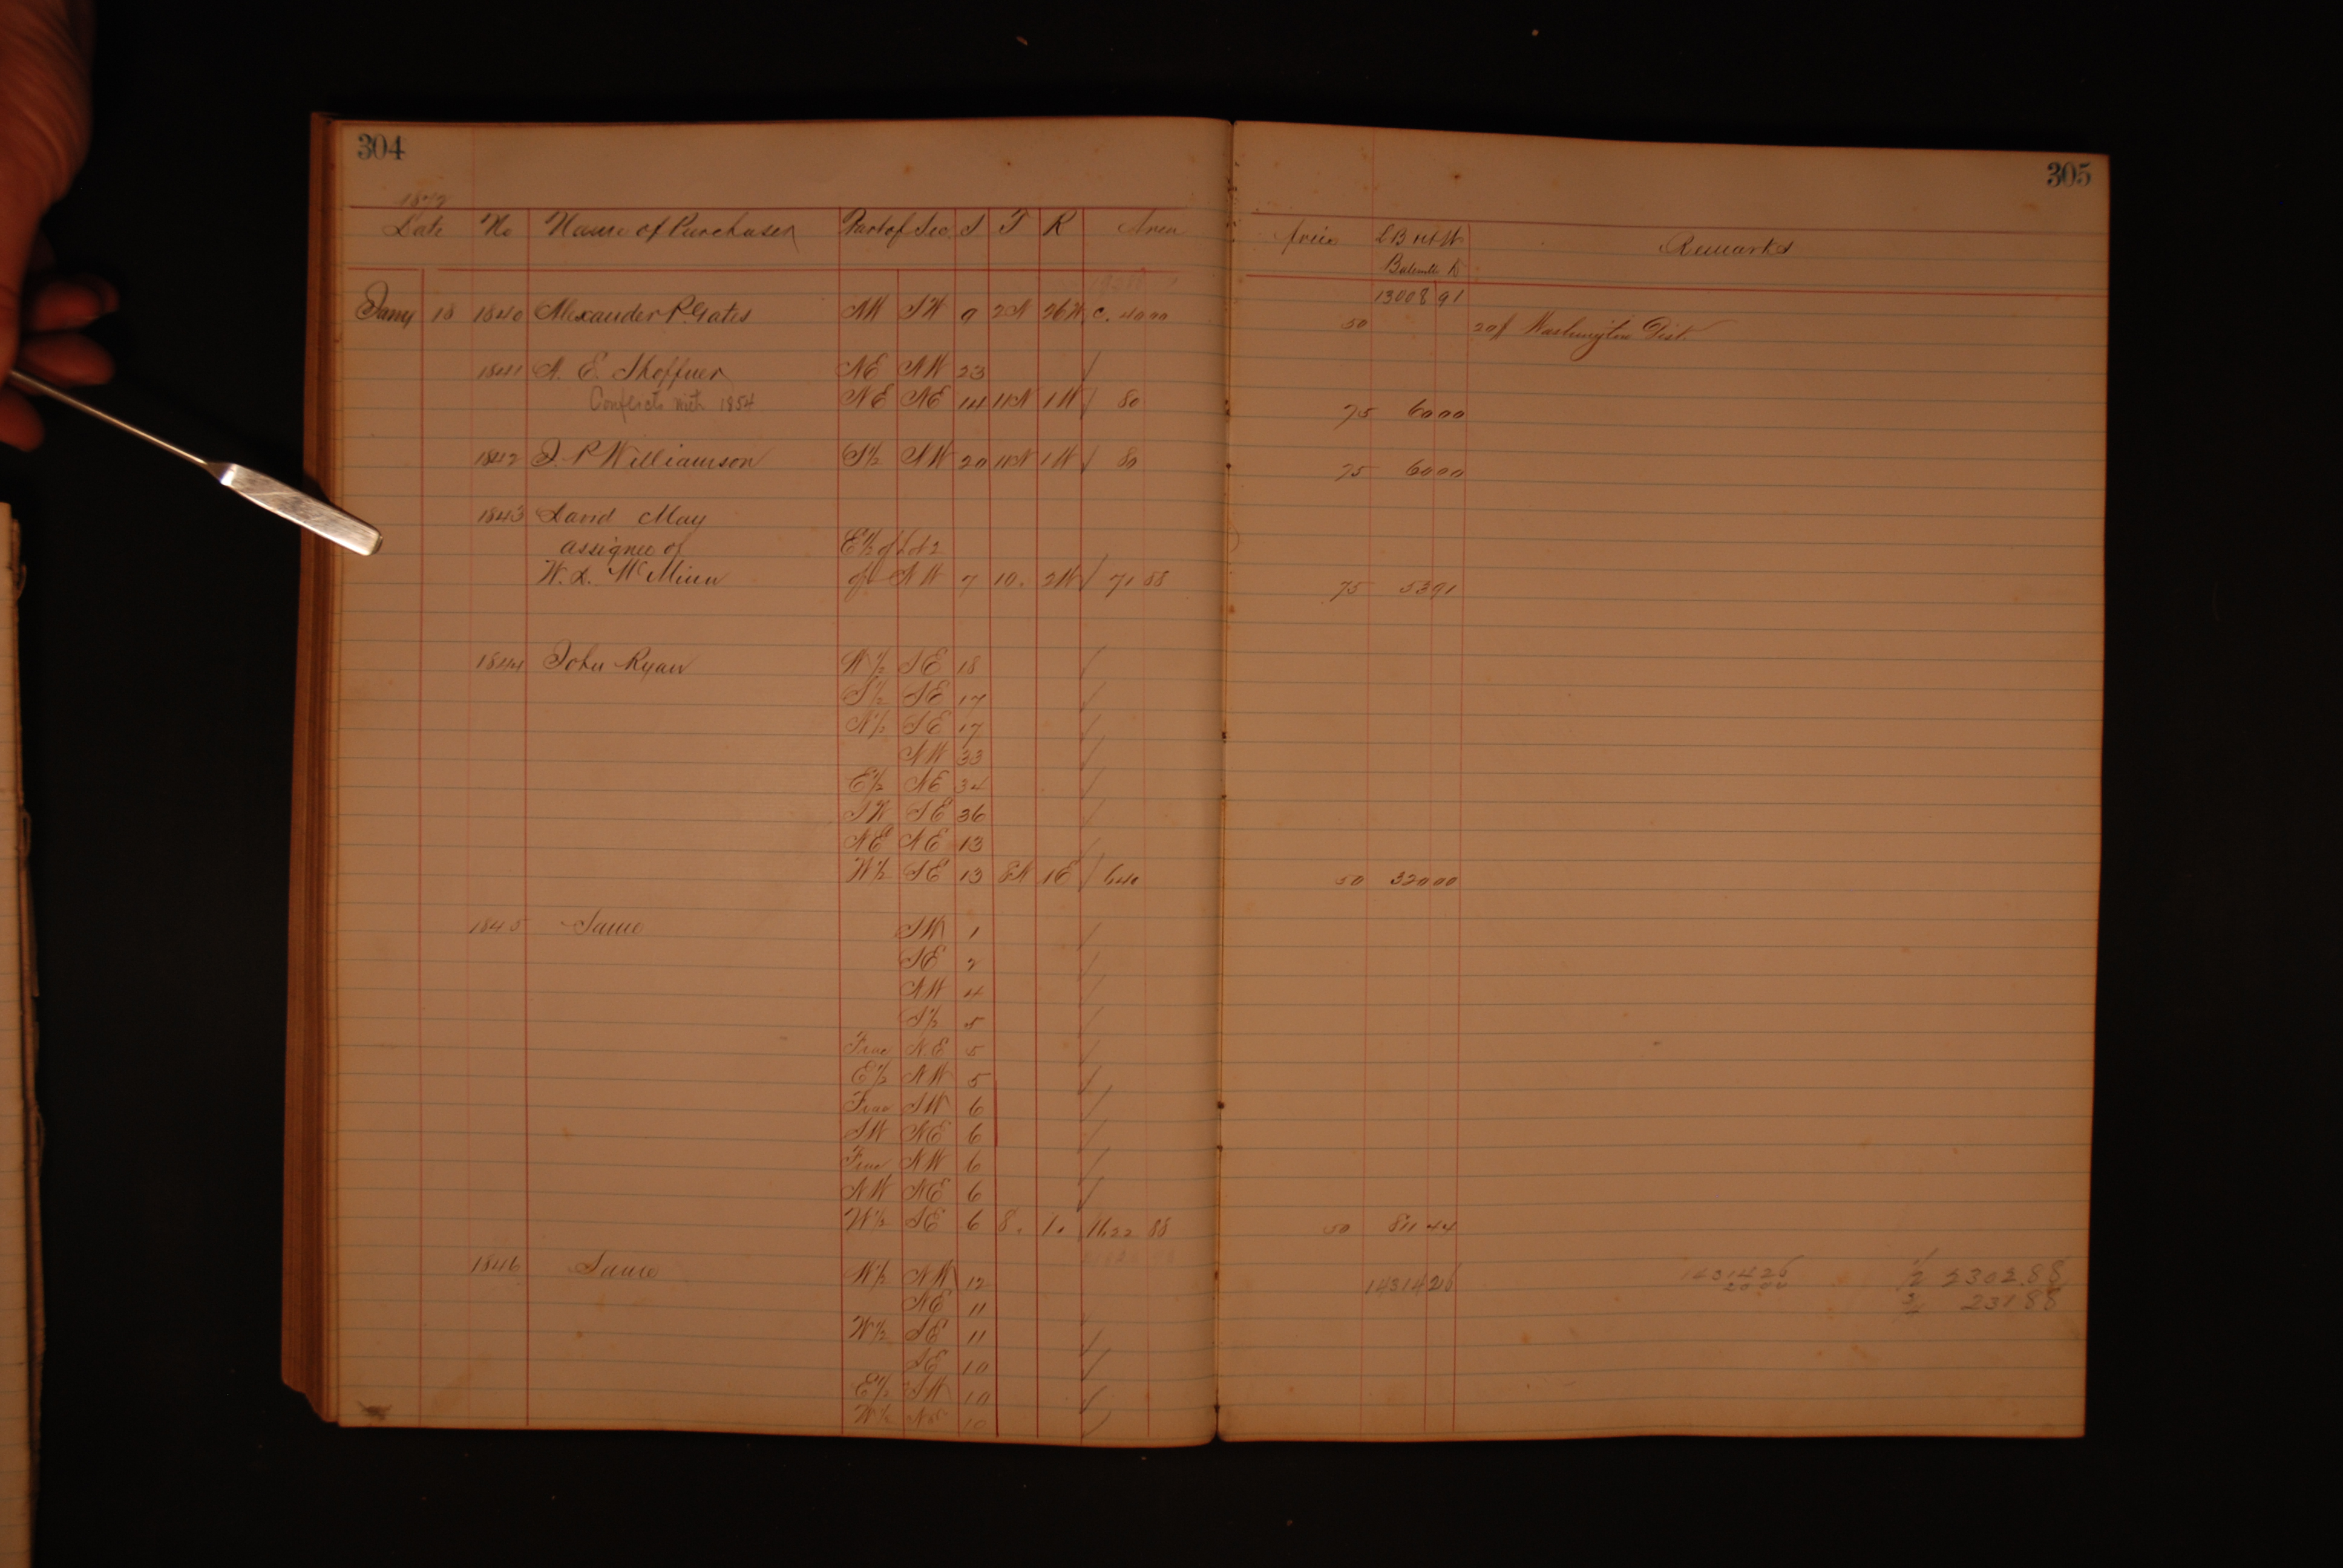 304
305
1872
Date No Name of Purchaser Part of Sec. S T R Area Price L B R R Remarks
13008 91
Jany 18 1840 Alexander P. Gates NW SW 9 2N 26W c. 40 00 50 20f Washington Dist.
1841 A. E. Shoffner NE NW 23
Conflicts with 1854 NE NE 14 11N 1W 80 75 60 00
1842 J. P Williamson S½ NW 20 11N 1W 80 75 60 00
1843 David May
assignee of E½ of Lot 2
W. L. McMinn of NW 7 10. 2W 71 88 75 53 91
1844 John Ryan W½ SE 18
S½ SE 17
N½ SE 17
NW 33
E½ NE 34
SW SE 36
NE NE 13
W½ SE 13 8N 1E 640 50 320 00
1845 Same SW 1
SE 2
NW 4
S½ 5
Frac N.E 5
E½ NW 5
Frac SW 6
SW NE 6
Frac NW 6
NW NE 6
W½ SE 6 8. 1. 1622 88 50 811 44
1846 Same W½ NW 12 14314 26 14314 26 ½ 2302.88
NE 11 20 00 231 88
W½ SE 11
SE 10
E½ SW 10
W½ 10